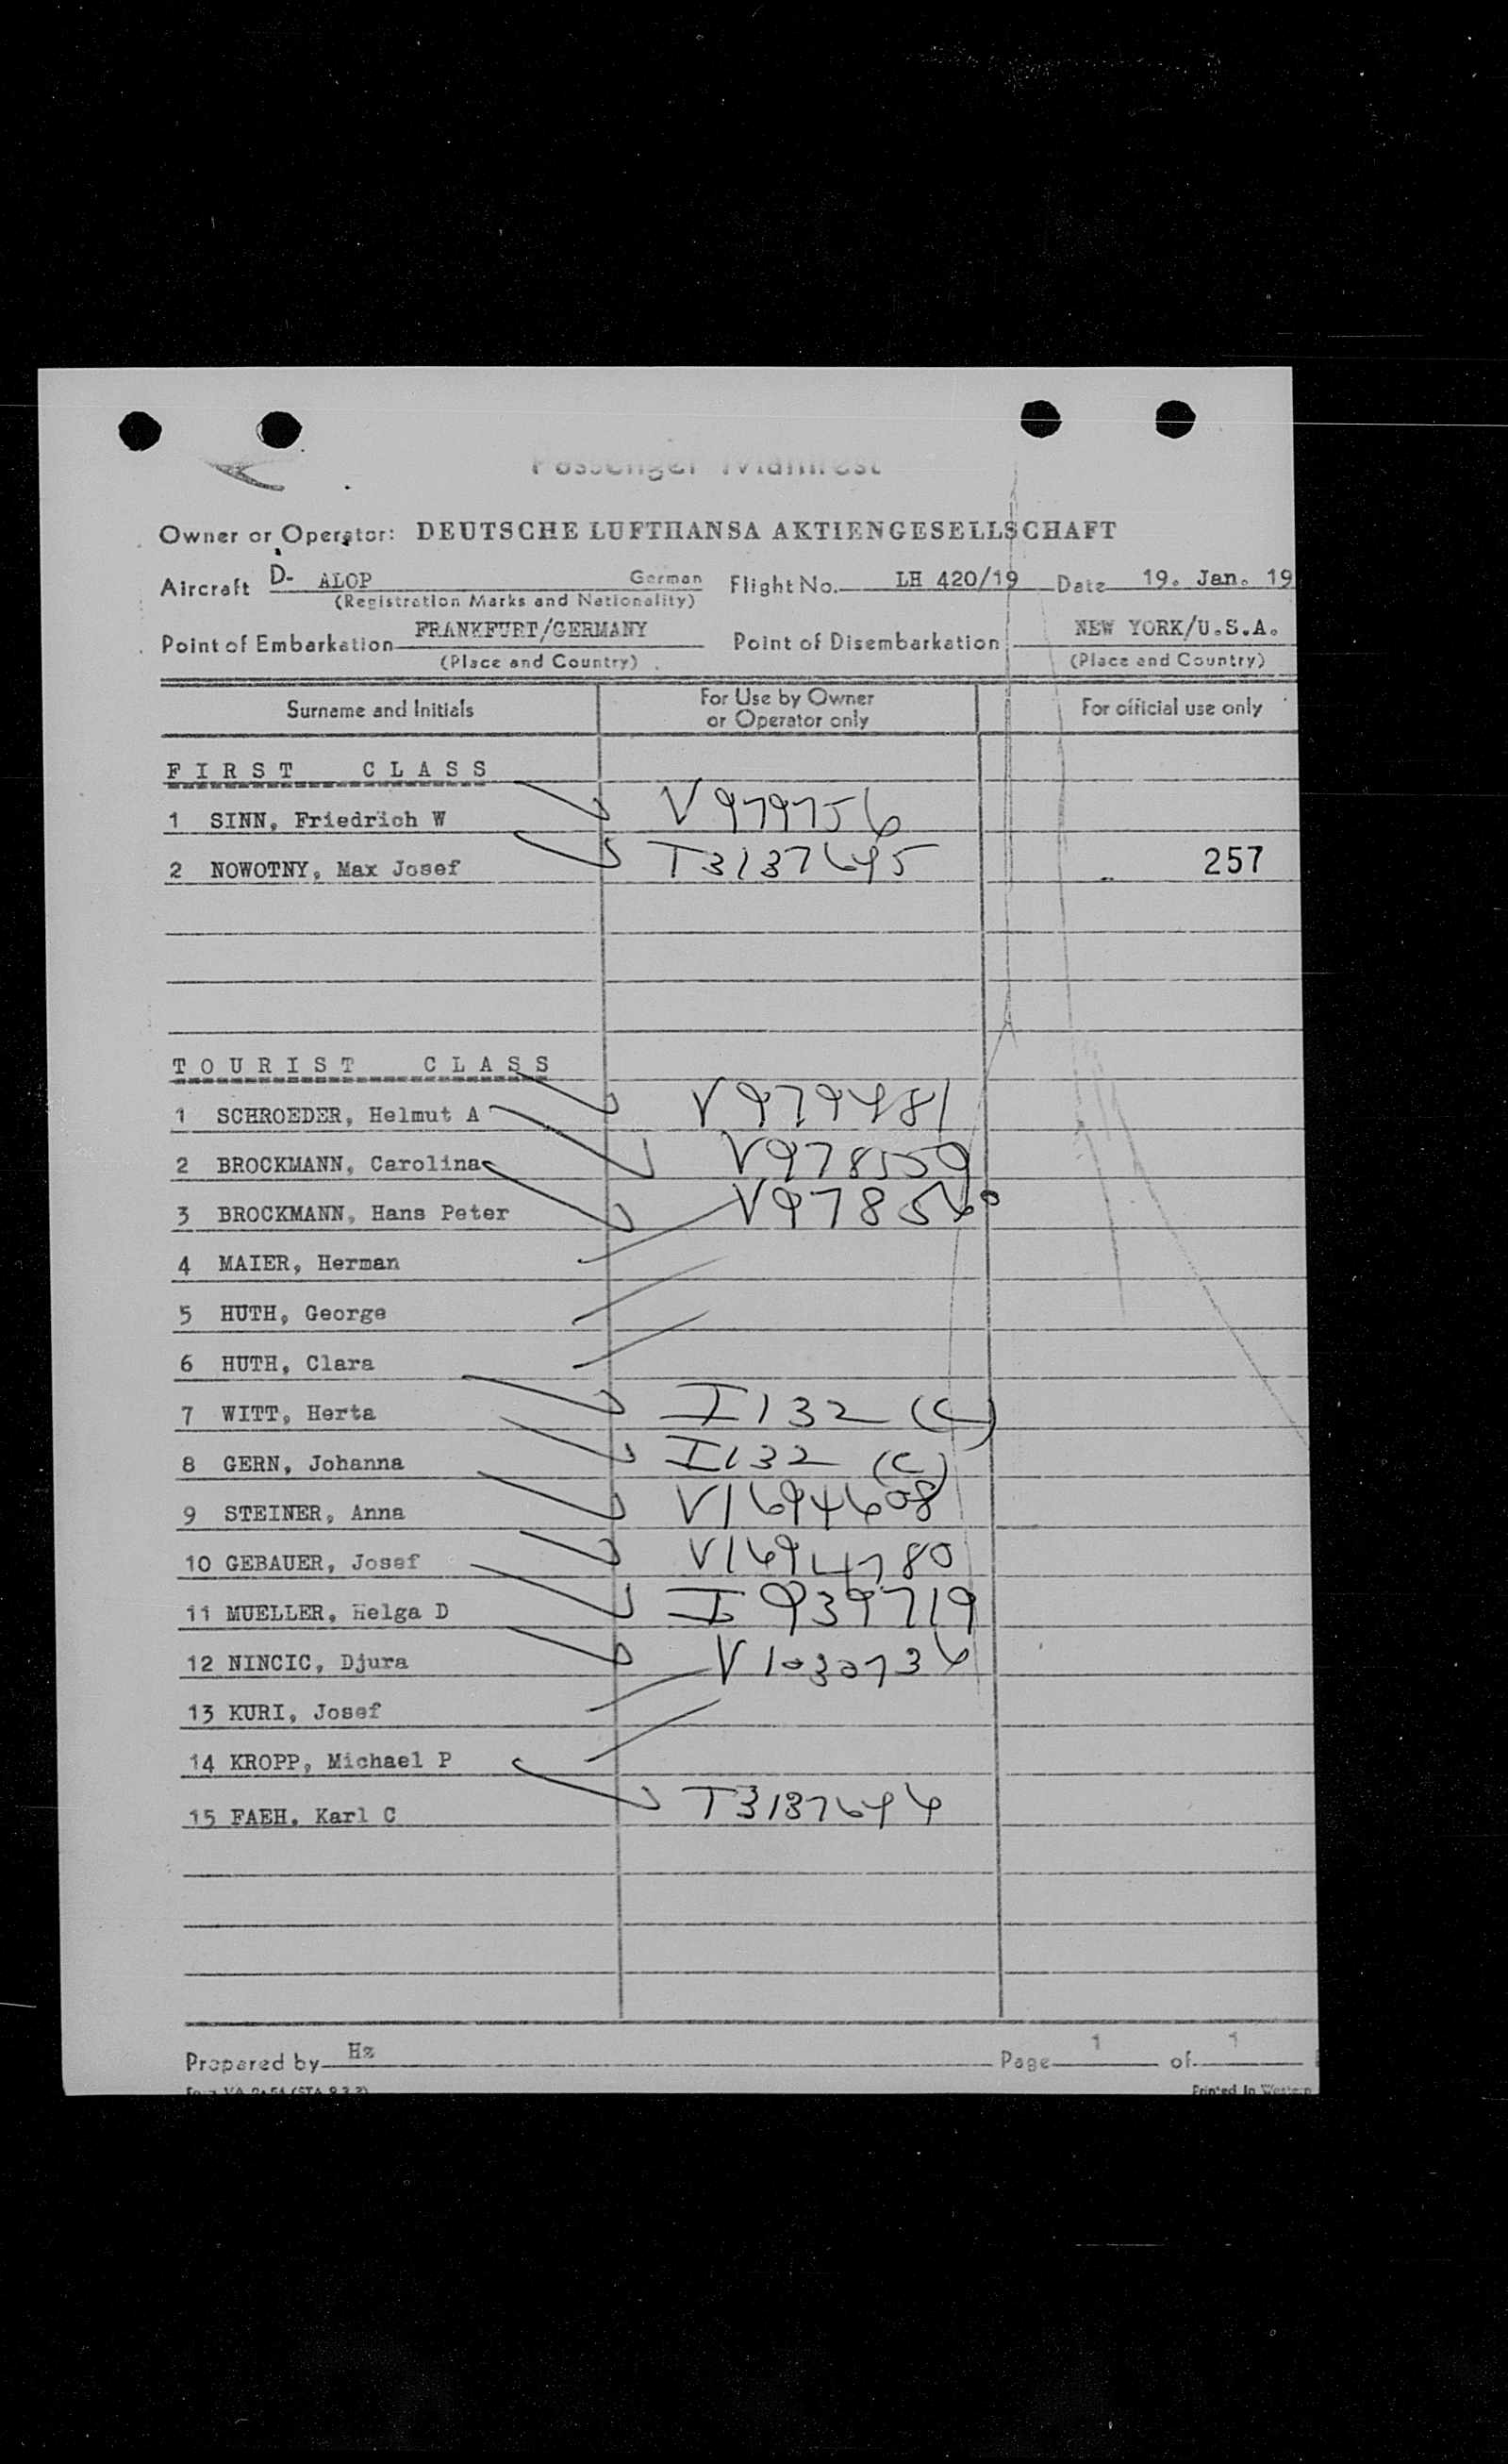 Passenger Manifest
Owner or Operator: DEUTSCHE LUFTHANSA AKTIENGESELLSCHAFT
Aircraft D- ALOP German Flight No. LH 420/19 Date 19. Jan. 19
(Registration Marks and Nationality)
Point of Embarkation FRANKFURT/GERMANY Point of Disembarkation NEW YORK/U.S.A.
(Place and Country) (Place and Country)
Surname and Initials For Use by Owner or Operator only For official use only
FIRST CLASS
1 SINN, Friedrich W V979756
2 NOWOTNY, Max Josef T3137695 257
TOURIST CLASS
1 SCHROEDER, Helmut A V979481
2 BROCKMANN, Carolina V978559
3 BROCKMANN, Hans Peter V978560
4 MAIER, Herman
5 HUTH, George
6 HUTH, Clara
7 WITT, Herta I132 (C)
8 GERN, Johanna I132 (C)
9 STEINER, Anna V1694608
10 GEBAUER, Josef V1694780
11 MUELLER, Helga D I939719
12 NINCIC, Djura V1030736
13 KURI, Josef
14 KROPP, Michael P
15 FAEH, Karl C T3137696
Prepared by Hz Page 1 of 1
Printed in Western